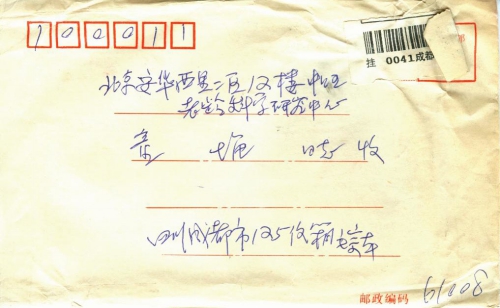 100011
挂 0041成都
北京安华西里二区12楼中国
老龄科学研究中心
收
四川成都市125信箱
邮政编码 61008